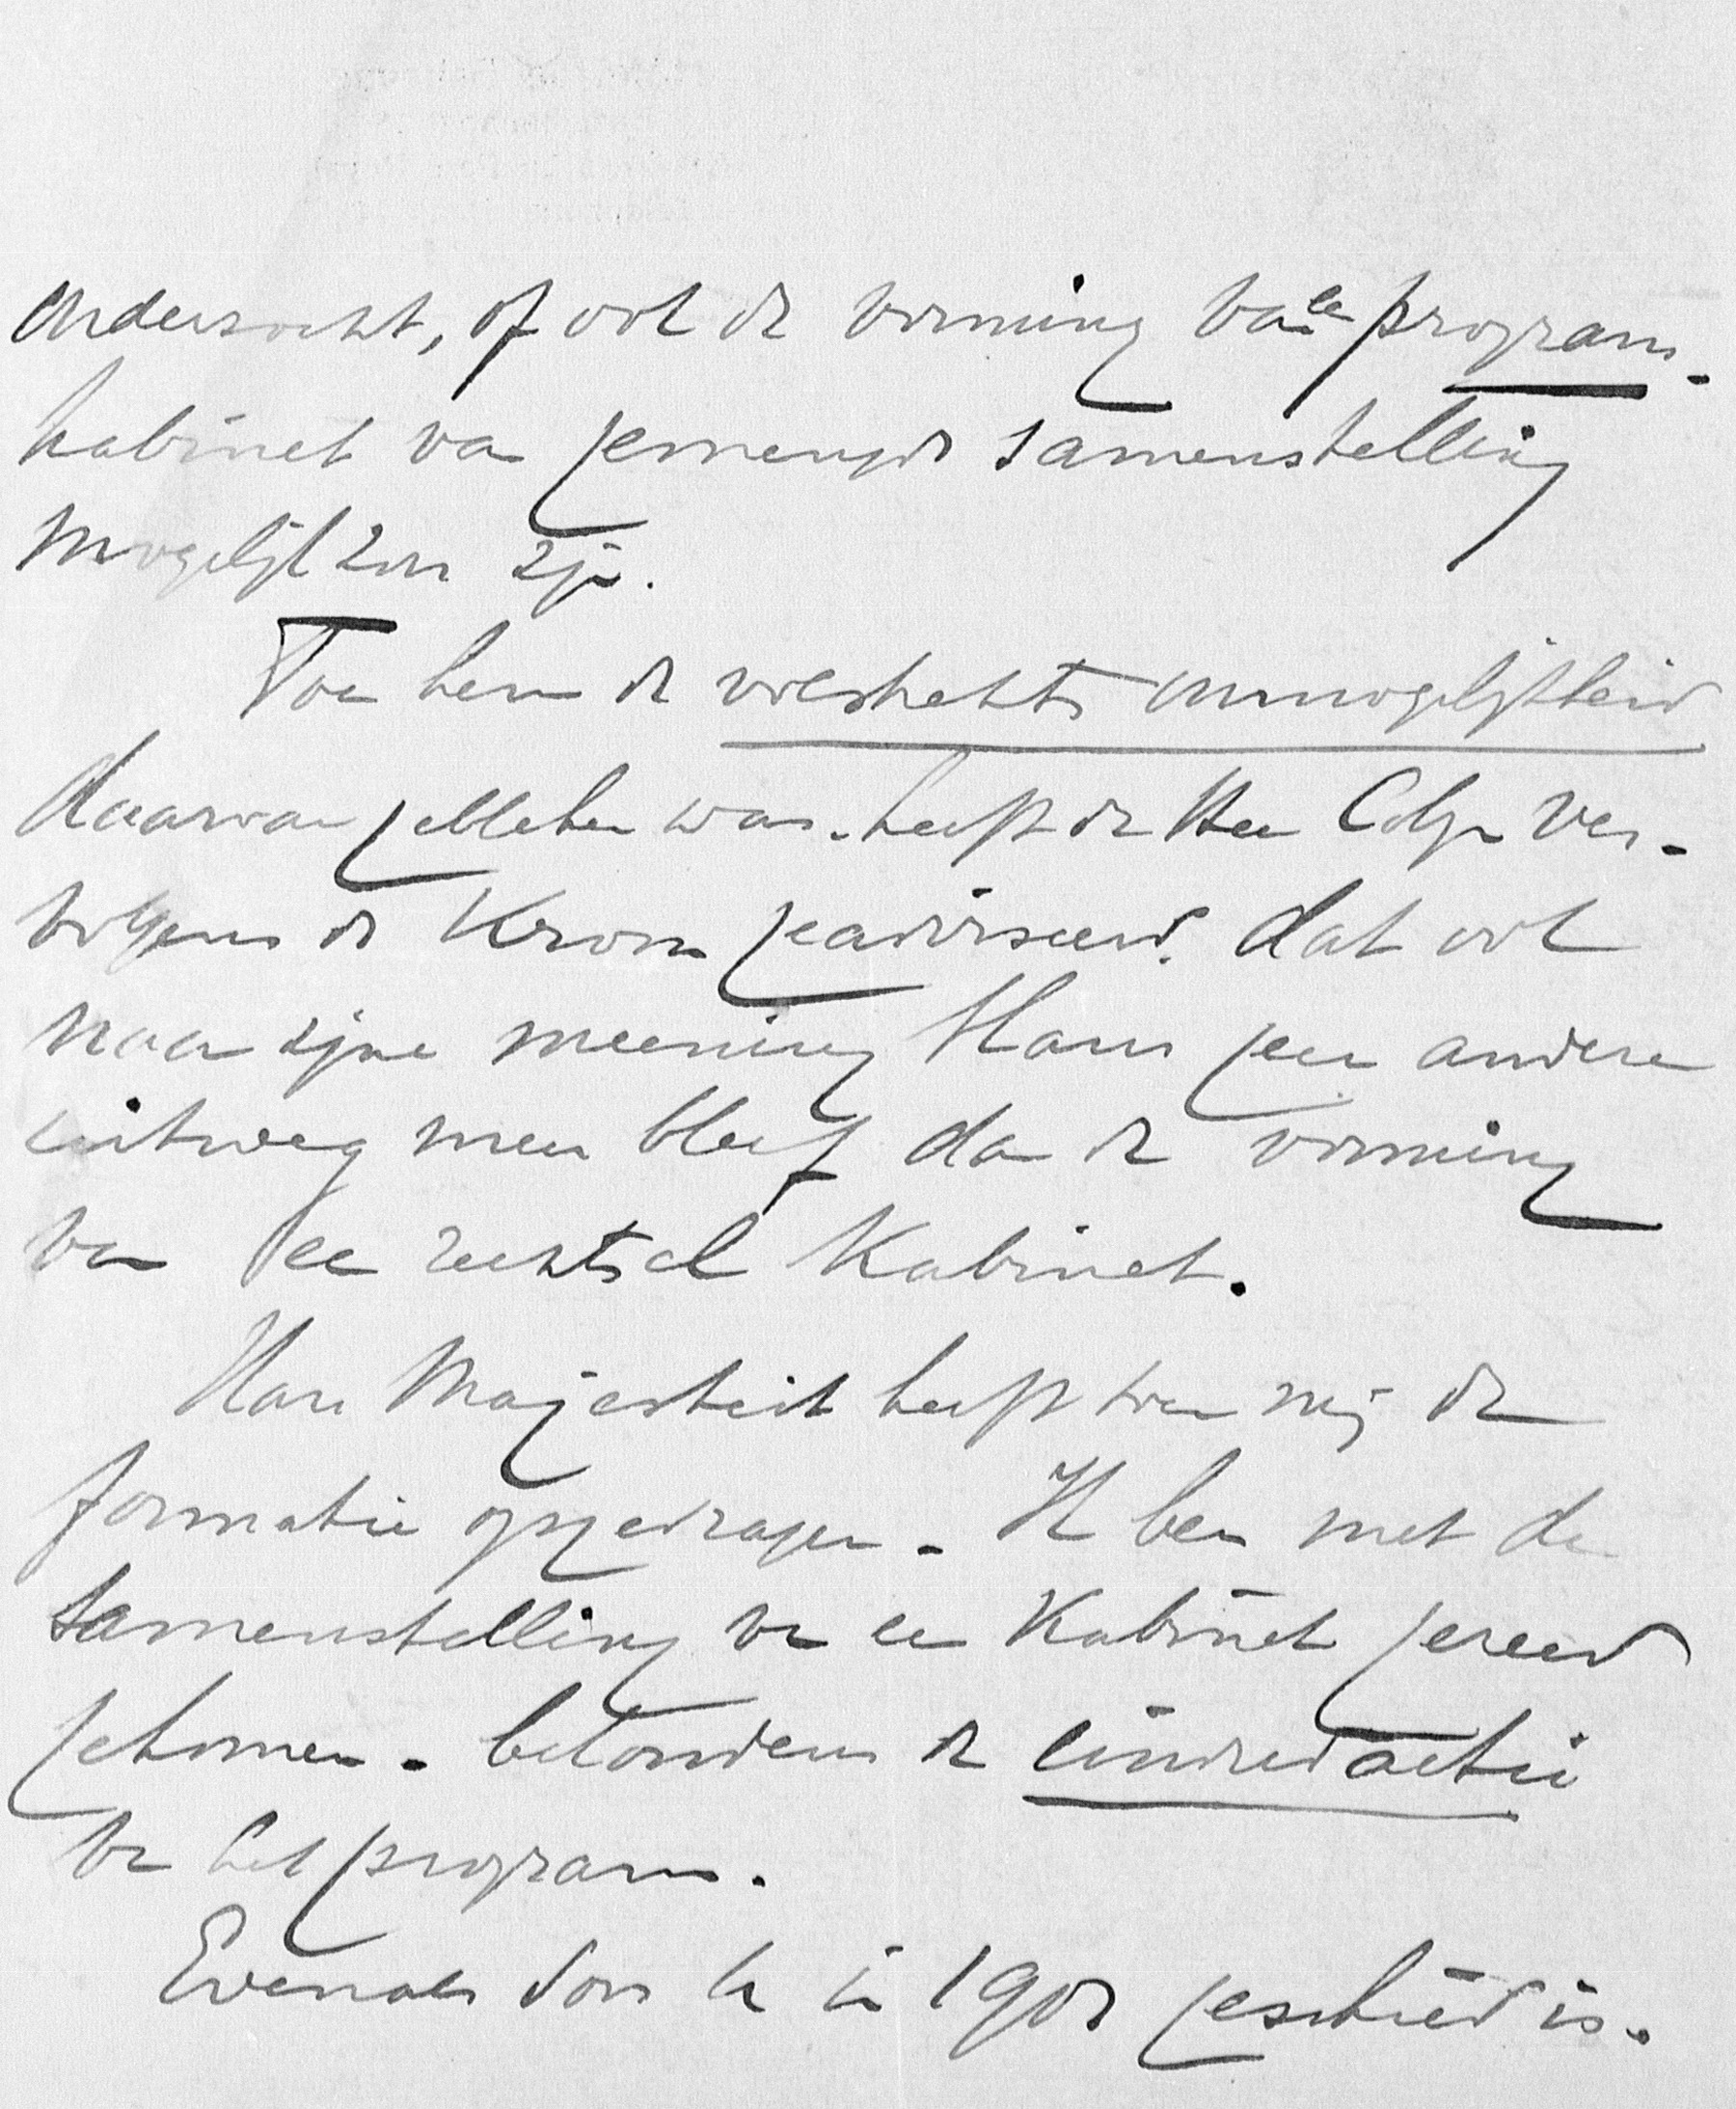 onderzocht, of ook de vorming van een program-
kabinet van gemengde samenstelling
mogelijk zou zijn.
Toen hem de volstrekte onmogelijkheid
daarvan gebleken was, heeft de Heer Colijn ver-
volgens de Kroon geadviseerd, dat ook
naar zijne meening thans geen andere
uitweg meer bleef dan de vorming
van een rechtsch Kabinet.
Hare Majesteit heeft toen mij de
formatie opgedragen. Ik ben met de
samenstelling van een Kabinet gereed
gekomen, behoudens de eindredactie
van het program.
Evenals door in 1901 geschied is,